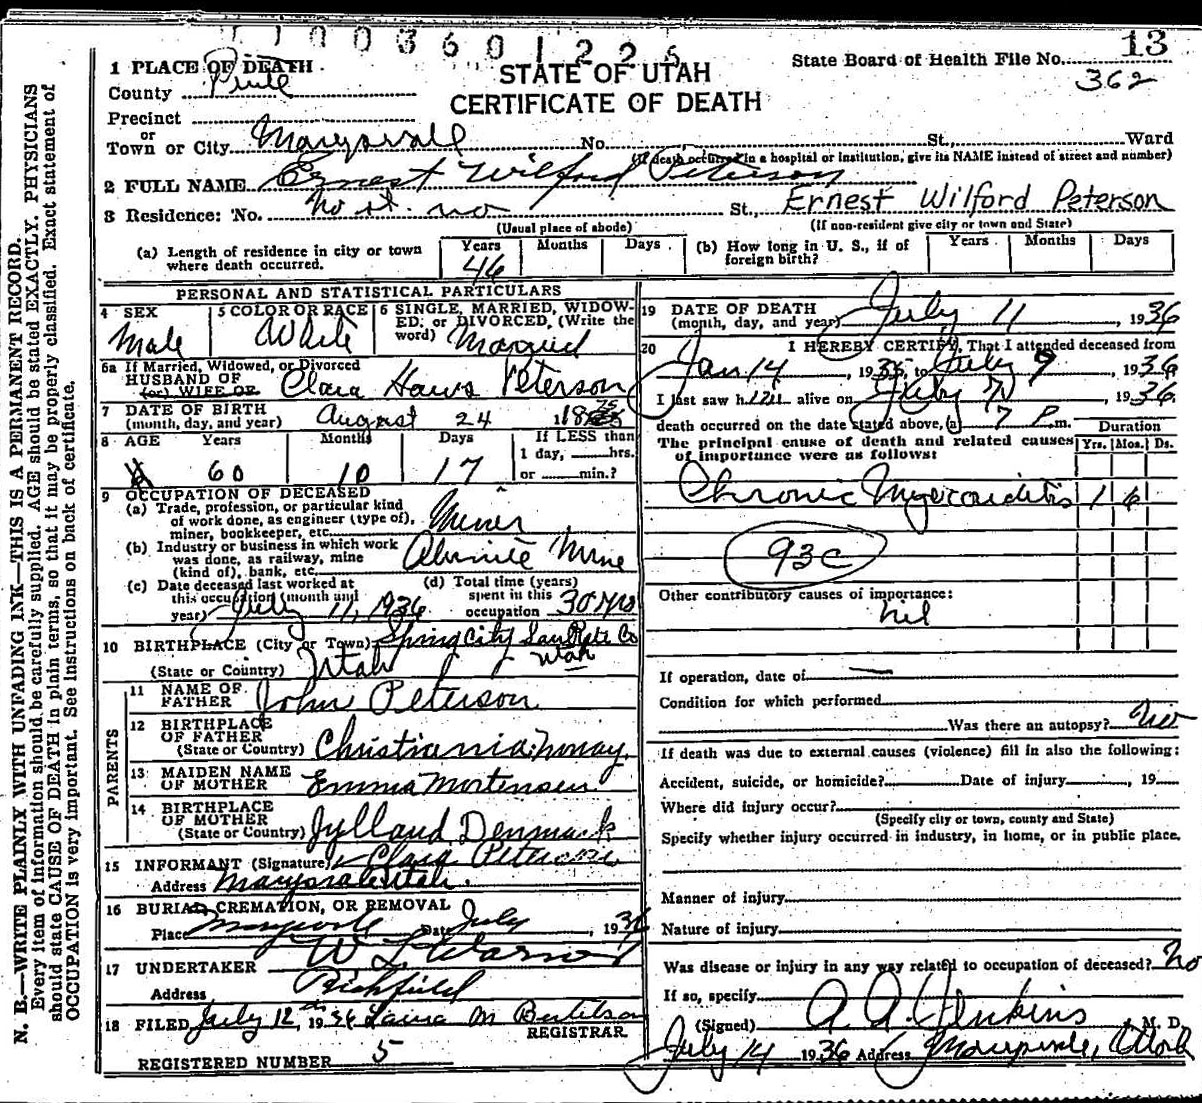 1003601226
13
State Board of Health File No.
362
1 PLACE OF DEATH
STATE OF UTAH
CERTIFICATE OF DEATH
County Piute
Precinct
or
Town or City Marysvale No. St., Ward
(If death occurred in a hospital or institution, give its NAME instead of street and number)
2 FULL NAME Ernest Wilford Peterson
3 Residence: No. no st. no St., Ernest Wilford Peterson
(Usual place of abode) (If non-resident give city or town and State)
(a) Length of residence in city or town where death occurred. Years 46 Months Days
(b) How long in U. S., if of foreign birth? Years Months Days
PERSONAL AND STATISTICAL PARTICULARS
4 SEX Male
5 COLOR OR RACE White
6 SINGLE, MARRIED, WIDOW-
ED, or DIVORCED, (Write the
word) Married
6a If Married, Widowed, or Divorced
HUSBAND OF
(or) WIFE OF Clara Haws Peterson
7 DATE OF BIRTH
(month, day, and year) August 24 18 75
8 AGE Years 60 Months 10 Days 17
If LESS than
1 day, hrs.
or min.?
9 OCCUPATION OF DECEASED
(a) Trade, profession, or particular kind
of work done, as engineer (type of),
miner, bookkeeper, etc. Miner
(b) Industry or business in which work
was done, as railway, mine
(kind of), bank, etc. Mine
(c) Date deceased last worked at
this occupation (month and
year) July 11, 1936
(d) Total time (years)
spent in this
occupation 30 yrs
10 BIRTHPLACE (City or Town) Spring City SanPete Co
Utah
(State or Country) Utah
PARENTS
11 NAME OF
FATHER John Peterson
12 BIRTHPLACE
OF FATHER
(State or Country) Christiania Norway
13 MAIDEN NAME
OF MOTHER Emma Mortensen
14 BIRTHPLACE
OF MOTHER
(State or Country) Jylland Denmark
15 INFORMANT (Signature) Clara Peterson
Address Marysvale Utah.
16 BURIAL, CREMATION, OR REMOVAL
Place Marysvale Date July , 1936
17 UNDERTAKER W L
Address Richfield
18 FILED July 12th, 1936 Laura M Bertelson
REGISTRAR.
REGISTERED NUMBER 5
19 DATE OF DEATH
(month, day, and year) July 11 , 1936
20 I HEREBY CERTIFY, That I attended deceased from
Jan 14 , 1935, to July 9 , 1936
I last saw him alive on July , 1936.
death occurred on the date stated above, (a) 7 P. m.
The principal cause of death and related causes
of importance were as follows:
Duration
Yrs. Mos. Ds.
Chronic Myocarditis 1 6
93c
Other contributory causes of importance:
nil
If operation, date of
Condition for which performed
Was there an autopsy? No
If death was due to external causes (violence) fill in also the following:
Accident, suicide, or homicide? Date of injury , 19
Where did injury occur?
(Specify city or town, county and State)
Specify whether injury occurred in industry, in home, or in public place.
Manner of injury
Nature of injury
Was disease or injury in any way related to occupation of deceased? No
If so, specify
(Signed) A. A. Jenkins , M. D.
July 14 1936 Address Marysvale, Utah
N. B.—WRITE PLAINLY WITH UNFADING INK—THIS IS A PERMANENT RECORD.
Every item of information should be carefully supplied. AGE should be stated EXACTLY. PHYSICIANS
should state CAUSE OF DEATH in plain terms, so that it may be properly classified. Exact statement of
OCCUPATION is very important. See instructions on back of certificate.